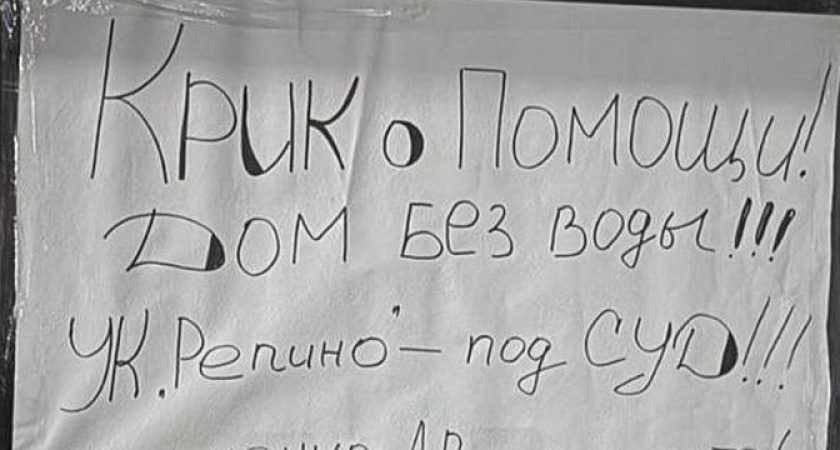 Крик о Помощи!
Дом без воды!!!
УК "Репино" – под СУД!!!